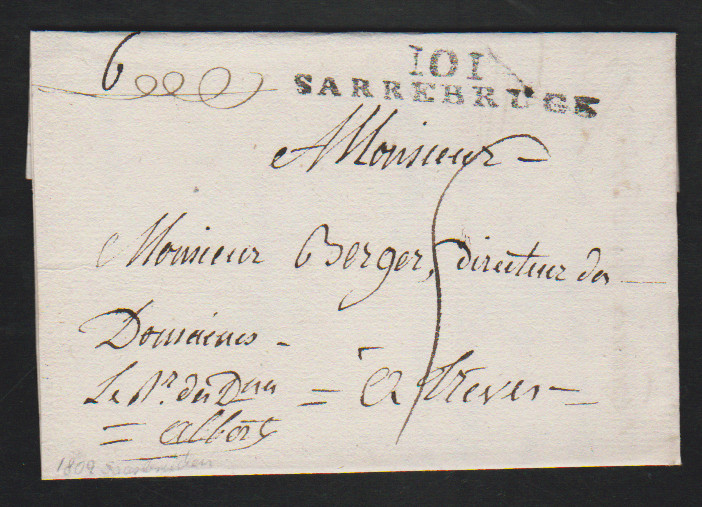 6
101
SARREBRUCK
A Monsieur
Monsieur Berger, directeur des
Domaines
5
Le Rr. des Dnes = à Treves =
= Albert
1809 Saarbrücken